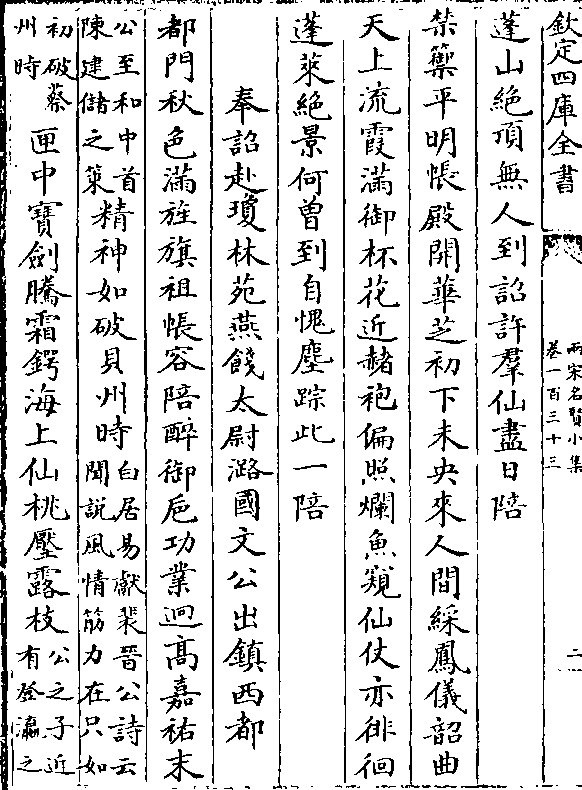 欽定四庫全書
兩宋名賢小集
卷一百三十三
二
蓬山絕頂無人到詔許羣仙盡日陪
禁籞平明帳殿開華芝初下未央來人間綵鳳儀韶曲
天上流霞滿御杯花近赭袍偏照爛魚窺仙仗亦徘徊
蓬萊絕景何曾到自愧塵踪此一陪
奉詔赴瓊林苑燕餞太尉潞國文公出鎮西都
都門秋色滿旌旗祖帳容陪醉御巵功業逈高嘉祐末
公至和中首
陳建儲之策
精神如破貝州時
白居易獻裴晉公詩云
聞說風情筋力在只如
初破蔡
州時
匣中寶劍騰霜鍔海上仙桃壓露枝
公之子近
有登瀛之